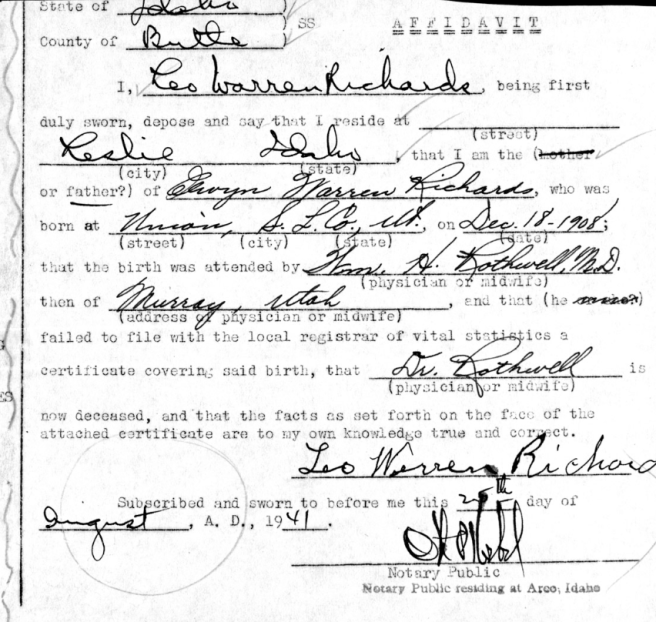 State of Idaho )
) SS AFFIDAVIT
County of Butte )
I, Leo Warren Richards, being first
duly sworn, depose and say that I reside at
(street)
Leslie Idaho, that I am the (mother
(city) (state)
or father?) of Elwyn Warren Richards, who was
born at Union, S. L. Co., Ut., on Dec. 18-1908;
(street) (city) (state) (date)
that the birth was attended by Wm. H. Rothwell, M.D.
(physician or midwife)
then of Murray, Utah, and that (he
(address of physician or midwife)
failed to file with the local registrar of vital statistics a
certificate covering said birth, that Dr. Rothwell is
(physician or midwife)
now deceased, and that the facts as set forth on the face of the
attached certificate are to my own knowledge true and correct.
Leo Warren Richard
Subscribed and sworn to before me this 25th day of
August, A. D., 1941.
Notary Public
Notary Public residing at Arco, Idaho